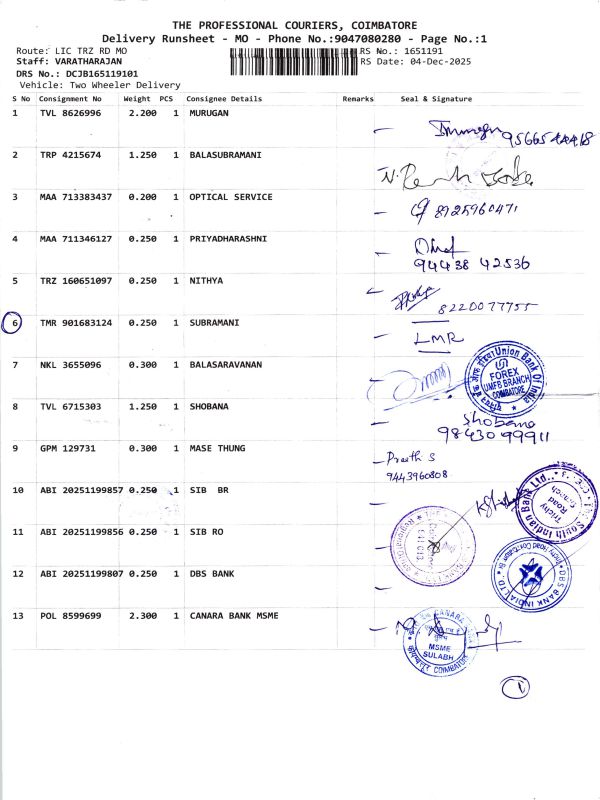 THE PROFESSIONAL COURIERS, COIMBATORE
Delivery Runsheet - MO - Phone No.:9047080280 - Page No.:1
Route: LIC TRZ RD MO RS No.: 1651191
Staff: VARATHARAJAN RS Date: 04-Dec-2025
DRS No.: DCJB165119101
Vehicle: Two Wheeler Delivery
S No Consignment No Weight PCS Consignee Details Remarks Seal & Signature
1 TVL 8626996 2.200 1 MURUGAN
2 TRP 4215674 1.250 1 BALASUBRAMANI
3 MAA 713383437 0.200 1 OPTICAL SERVICE
8925960471
4 MAA 711346127 0.250 1 PRIYADHARASHNI
94438 42536
5 TRZ 160651097 0.250 1 NITHYA
8220077755
6 TMR 901683124 0.250 1 SUBRAMANI
LMR
7 NKL 3655096 0.300 1 BALASARAVANAN
Union Bank Of India
FOREX
UMFB BRANCH
COIMBATORE
8 TVL 6715303 1.250 1 SHOBANA
Shobana
98430 99911
9 GPM 129731 0.300 1 MASE THUNG
Preeth S
9443960808
10 ABI 20251199857 0.250 1 SIB BR
South Indian Bank Ltd.
Trichy Road Branch
11 ABI 20251199856 0.250 1 SIB RO
12 ABI 20251199807 0.250 1 DBS BANK
DBS BANK INDIA LTD
13 POL 8599699 2.300 1 CANARA BANK MSME
CANARA BANK
MSME
SULABH
COIMBATORE
1